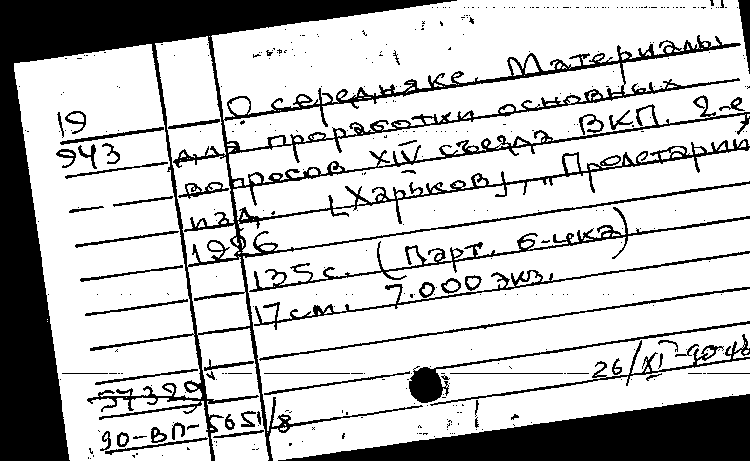 19
943
О середняке. Материалы
для проработки основных
вопросов XIV съезда ВКП. 2-е
изд. [Харьков], „Пролетарий",
1926.
135 с. (Парт. б-чка).
17 см. 7.000 экз.
57329
26/XI-90-
90-ВП-5651/8